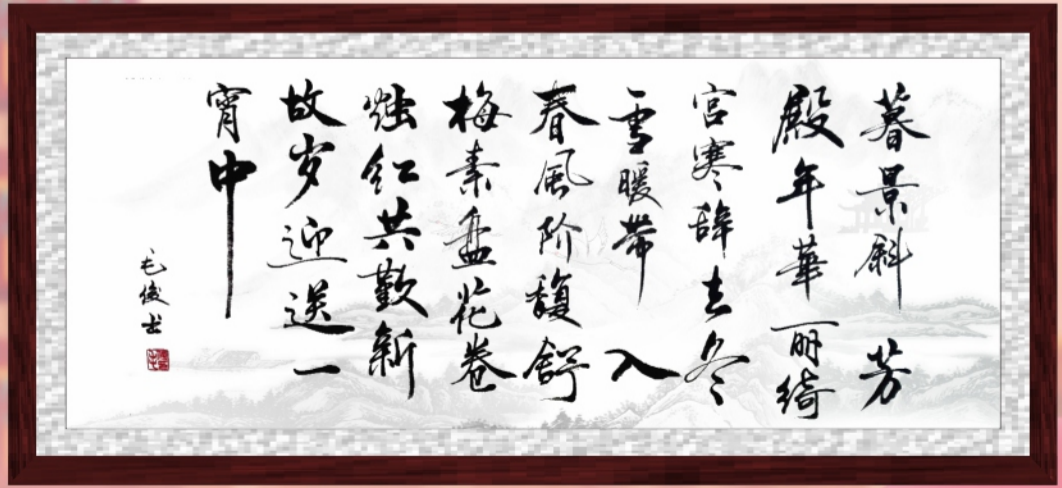 暮景斜芳
殿年華丽绮
宫寒辞去冬
雪暖带入
春風阶馥舒
梅素盘花卷
烛红共歡新
故岁迎送一
宵中
毛俊书